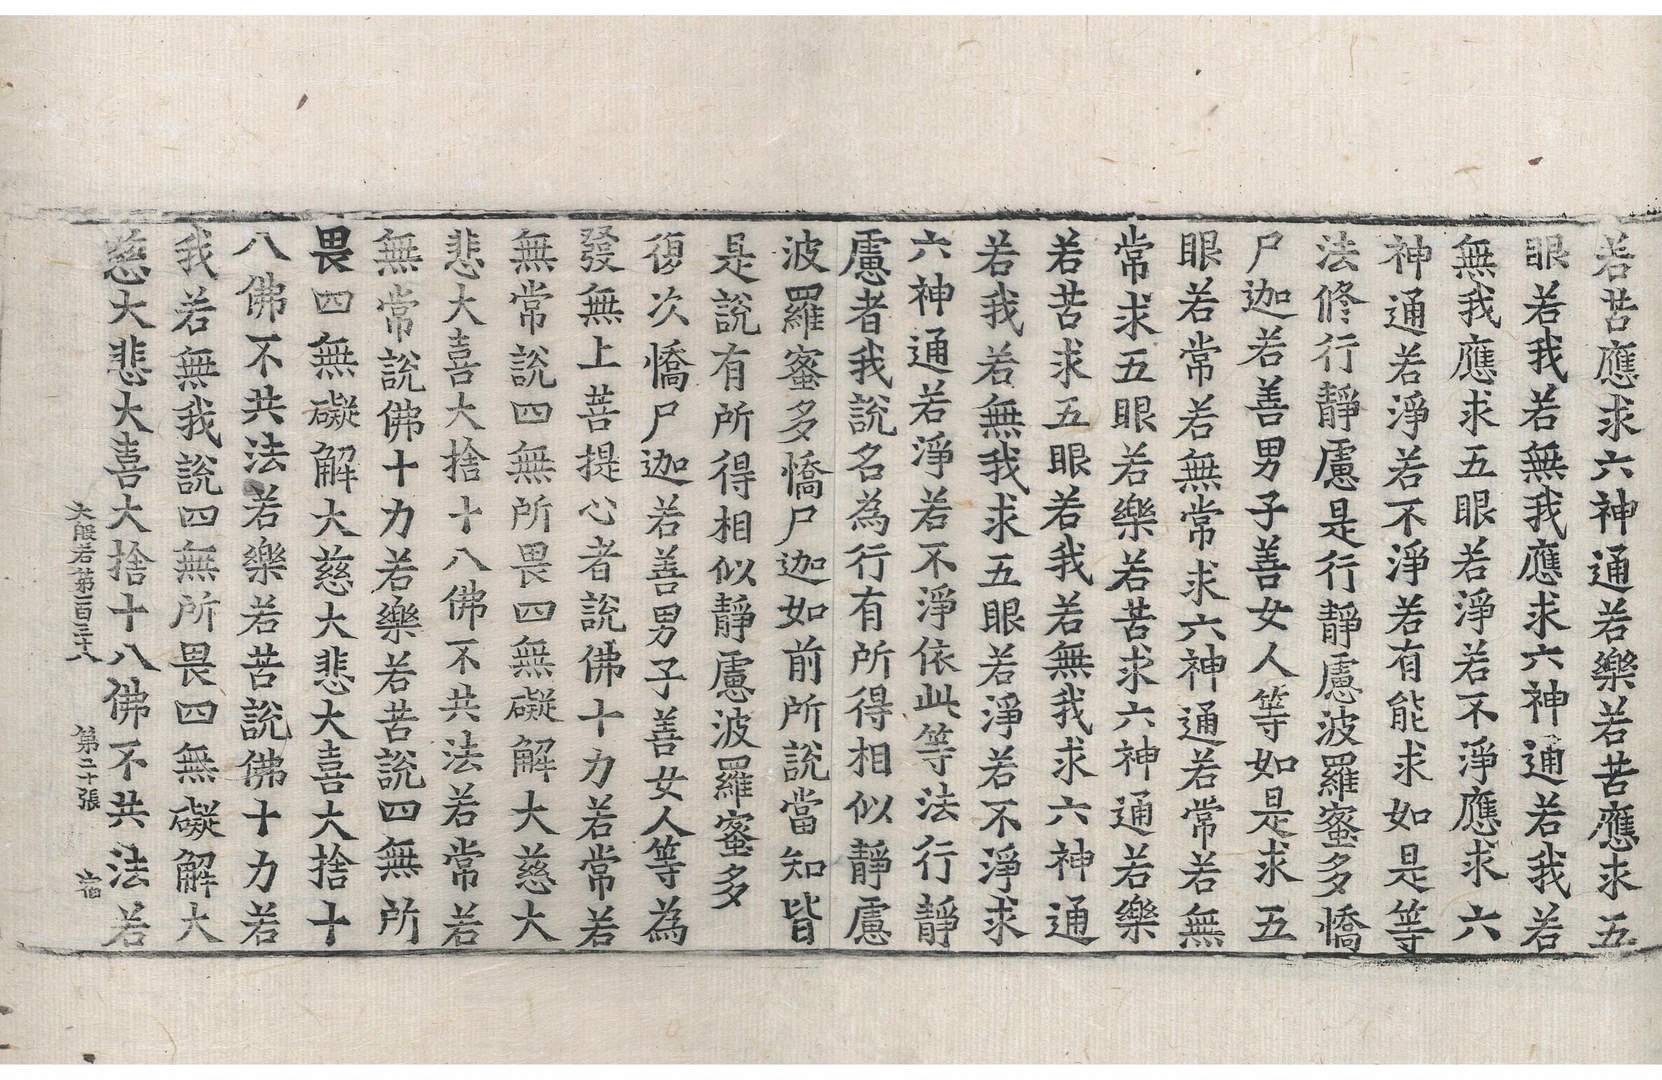 若苦應求六神通若樂若苦應求五
眼若我若無我應求六神通若我若
無我應求五眼若淨若不淨應求六
神通若淨若不淨若有能求如是等
法修行靜慮是行靜慮波羅蜜多憍
尸迦若善男子善女人等如是求五
眼若常若無常求六神通若常若無
常求五眼若樂若苦求六神通若樂
若苦求五眼若我若無我求六神通
若我若無我求五眼若淨若不淨求
六神通若淨若不淨依此等法行靜
慮者我說名為行有所得相似靜慮
波羅蜜多憍尸迦如前所說當知皆
是說有所得相似靜慮波羅蜜多
復次憍尸迦若善男子善女人等為
發無上菩提心者說佛十力若常若
無常說四無所畏四無礙解大慈大
悲大喜大捨十八佛不共法若常若
無常說佛十力若樂若苦說四無所
畏四無礙解大慈大悲大喜大捨十
八佛不共法若樂若苦說佛十力若
我若無我說四無所畏四無礙解大
慈大悲大喜大捨十八佛不共法若
大般若第一百三十八 第二十張 宿